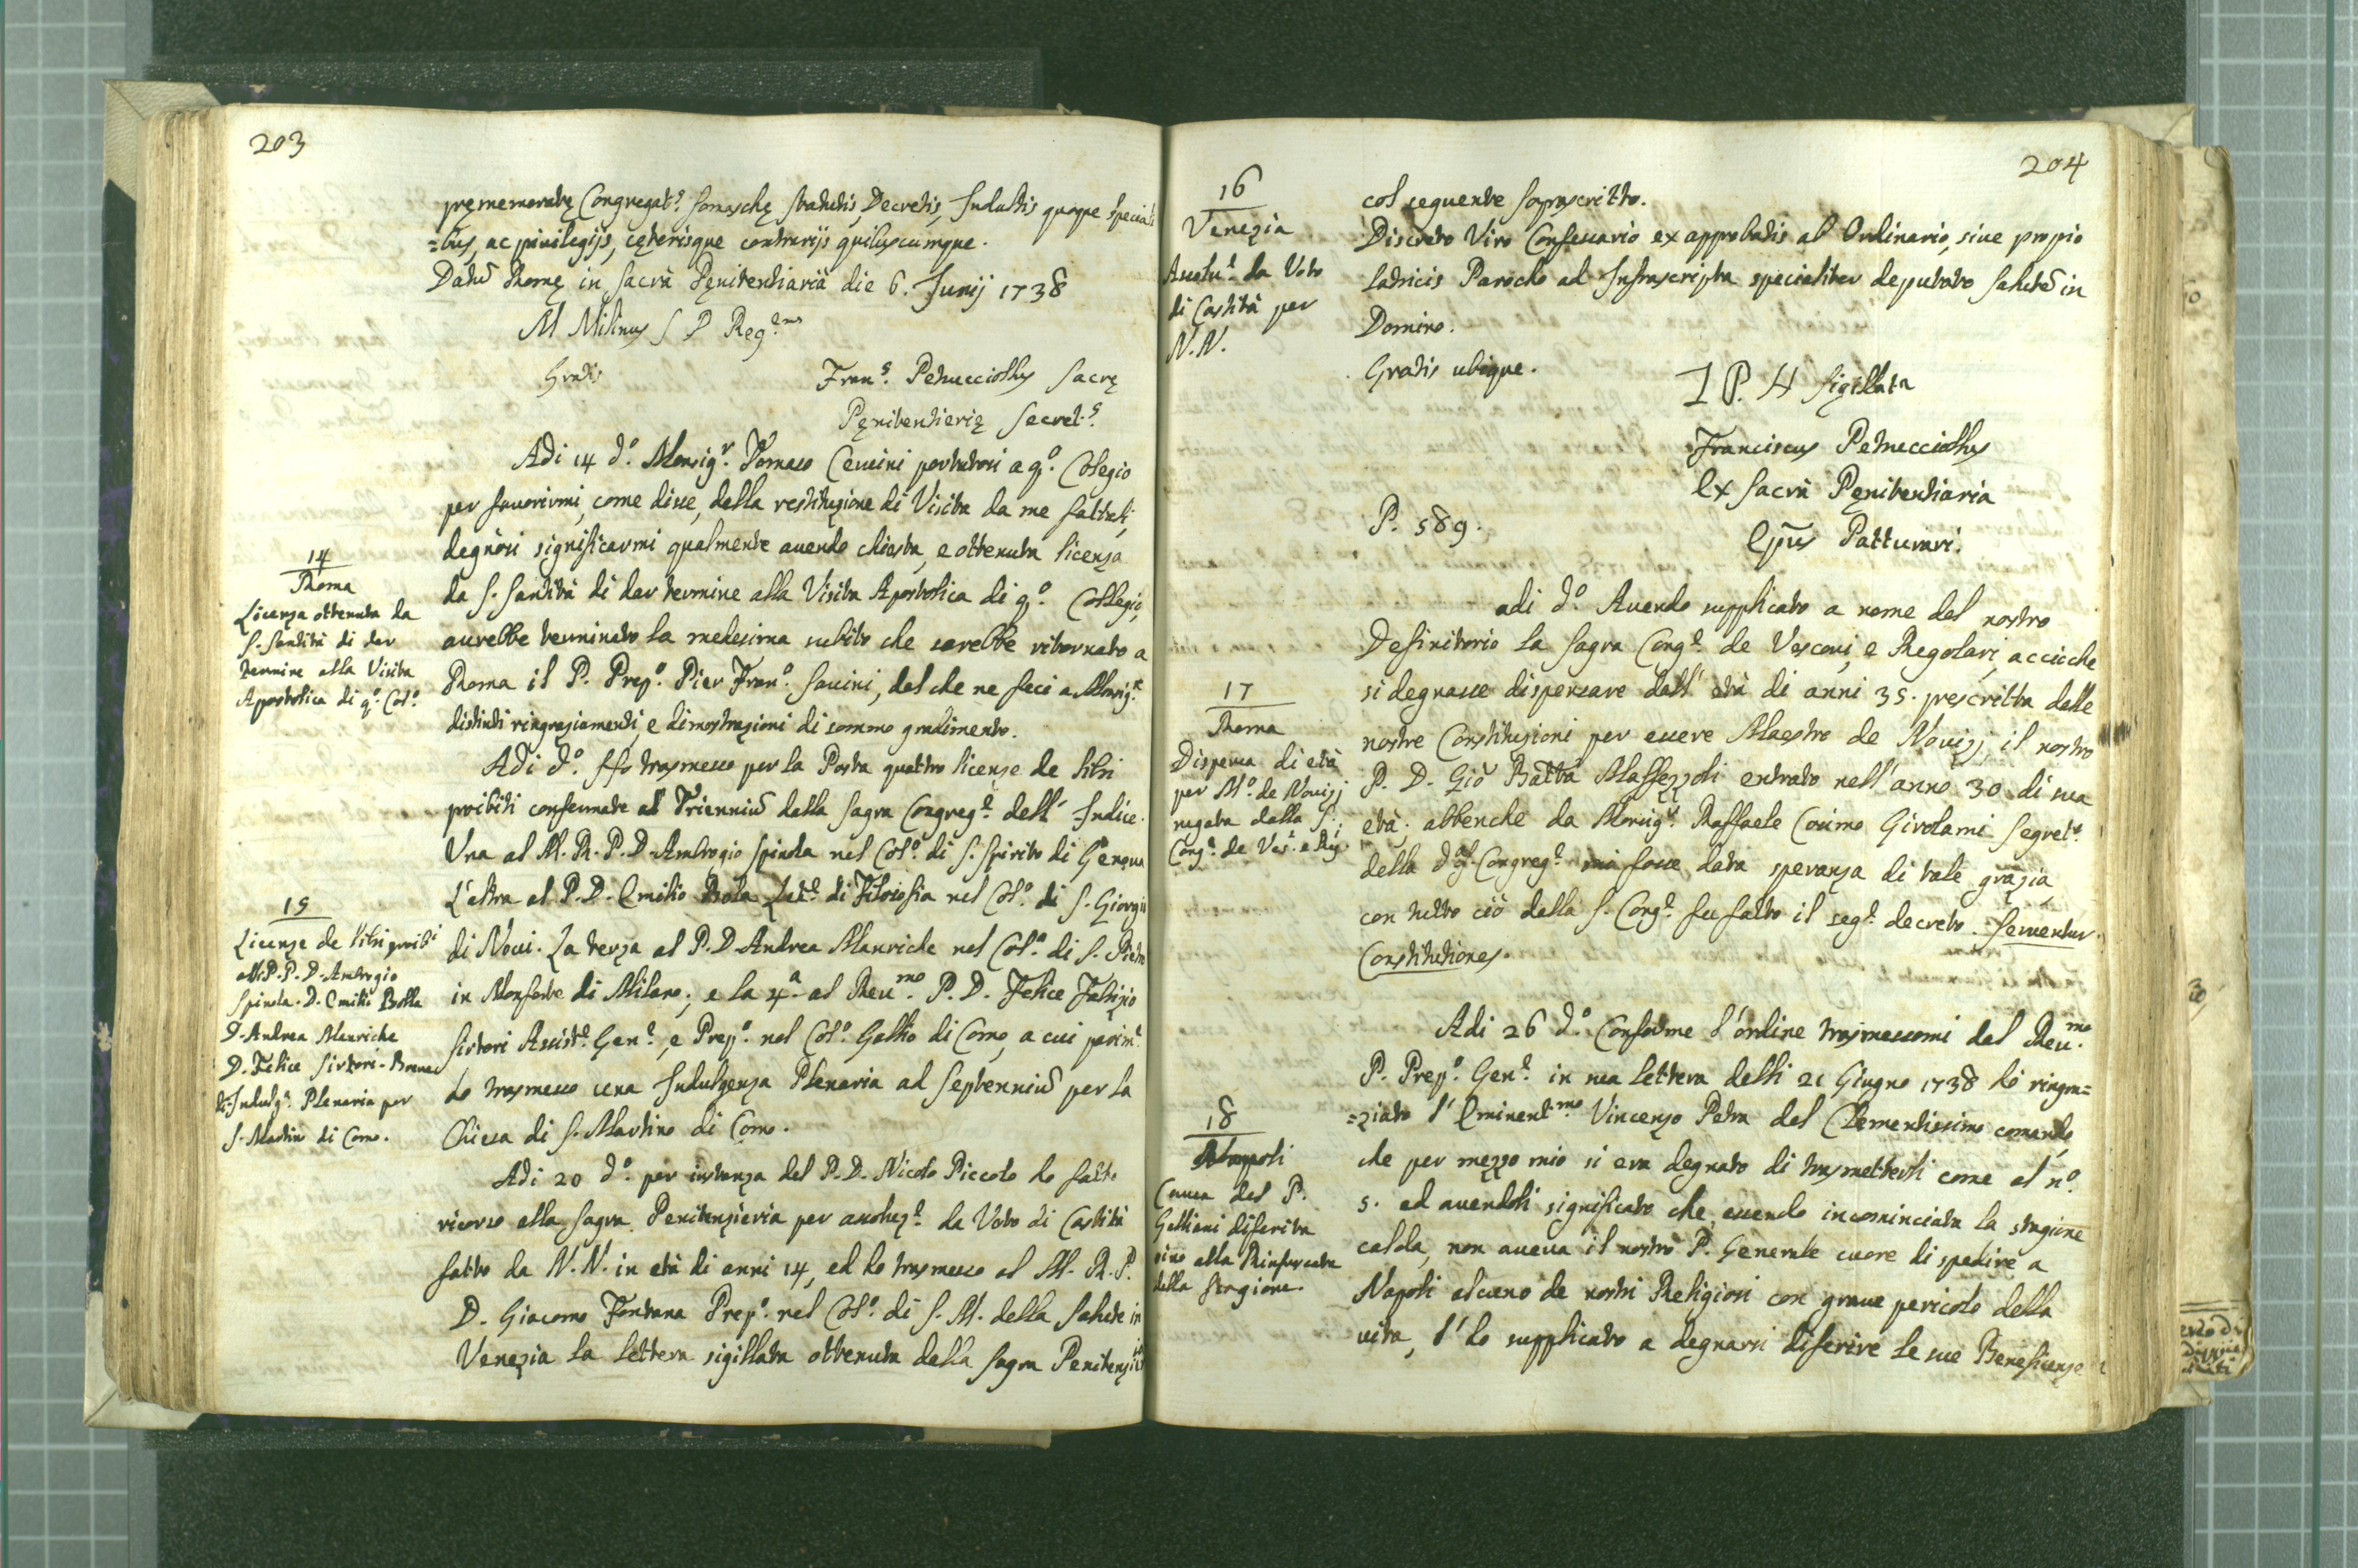 203
pręmemoratę Congregat.e Somaschę statutis, Decretis, Indultis quoque speciali
=bus, ac privilegijs, cęterisque contrarijs quibuscumque.
Datū Romę in Sacrâ Pęnitentiariâ die 6. Junij 1738
M Milinus S P Reg.ens
Gratis
Fran.s Petrucciollus Sacrę
Pęnitentierię Secret.s
Adi 14 d.o Monsig.r Tomaso Cervini portatosi a q.o Collegio
per favorirmi, come disse, della restituzione di Visita da me fattali,
degnossi significarmi qualmente avendo chiesta, e ottenuta licenza
da S. Santità di dar termine alla Visita Apostolica di q.o Collegio,
avrebbe terminato la medesima subito che sarebbe ritornato a
Roma il P. Prep.o Pier Fran.o Savini, del che ne feci a Monsig.r
distinti ringraziamenti, e dimostrazioni di sommo gradimento.
14
Roma
Licenza ottenuta da
S. Santità di dar
termine alla Visita
Apostolica di q.o Col.o
Adi d.o Hò trasmesso per la Posta quattro licenze de libri
proibiti confermate ad Trienniū dalla Sagra Congreg.e dell' Indice.
Una al M. R. P. D. Ambrogio Spinola nel Col.o di S. Spirito di Genova
L'altra al P. D. Emilio Bola Let.e di Filosofia nel Col.o di S. Giorgio
di Novi. La terza al P. D Andrea Manriche nel Col.o di S. Pietro
in Monforte di Milano; e la 4.a al Reu.mo P. D. Felice Fabrizio
Sirtori Assist.e Gen.e, e Prep.o nel Col.o Gallio di Como, a cui parim.e
hò trasmesso una Indulgenza Plenaria ad Septenniū per la
Chiesa di S. Martino di Como.
15
Licenze de libri proib.i
alli P. P. D. Ambrogio
Spinola. D. Emilio Bolla
D. Andrea Manriche
D. Felice Sirtori. Breve
di Indulg.e Plenaria per
S. Martino di Como.
Adi 20 d.o per instanza del P. D. Nicolo Piccolo ho fatto
ricorso alla Sagra Penitenzieria per asoluz.e da Voto di Castità
fatto da N. N. in età di anni 14, ed ho trasmesso al M. R. P.
D. Giacomo Fontana Prep.o nel Col.o di S. M. della Salute in
Venezia la lettera sigillata ottenuta dalla Sagra Penitenzia
204
16
Venezia
Asolu.e da Voto
di Castità per
N. N.
col seguente soprascritto.
Discreto Viro Confessario ex approbatis ab Ordinario, sive propio
Latricis Parocho ad Infrascripta specialiter deputato salutē in
Domino.
Gratis ubique.
P. H sigillata
Franciscus Petrucciollus
Ex Sacrâ Pęnitentiaria
P. 589.
Epūs Pattuvari.
adi d.o Avendo supplicato a nome del nostro
Definitorio la Sagra Cong.e de Vescovi, e Regolari, accioche
si degnasse dispensare dall' età di anni 35. prescritta dalle
nostre Constituzioni per essere Maestro de Novizj il nostro
P. D. Gio Batta Maffezzoli entrato nell' anno 30 di sua
età. abbenche da Monsig.r Raffaele Cosimo Girolami Segret.o
della d.a Congreg.e mi fosse data speranza di tale grazia,
con tutto ciò dalla S. Cong.e fu fatto il seg.e decreto. Serventur
Constitutiones.
17
Roma
Dispensa di età
per M.o de Novizj
negata dalla S.
Cong.e de Ves.i e Reg.i
Adi 26 d.o Conforme l'ordine trasmessomi dal Reu.mo
P. Prep.o Gen.e in sua lettera delli 21 Giugno 1738 hò ringra=
=ziato l'Eminent.mo Vincenzo Petra del Clementissimo comando,
che per mezzo mio si era degnato di trasmetterli come al n.o
5. ed avendoli significato che, essendo incominciata la stagione
calda, non aveva il nostro P. Generale cuore di spedire a
Napoli alcuno de nostri Religiosi con grave pericolo della
vita, l'ho supplicato a degnarsi diferire le sue Beneficenze
18
Napoli
Causa del P.
Galliani diferita
sino alla Rinfrescata
della Stagione.